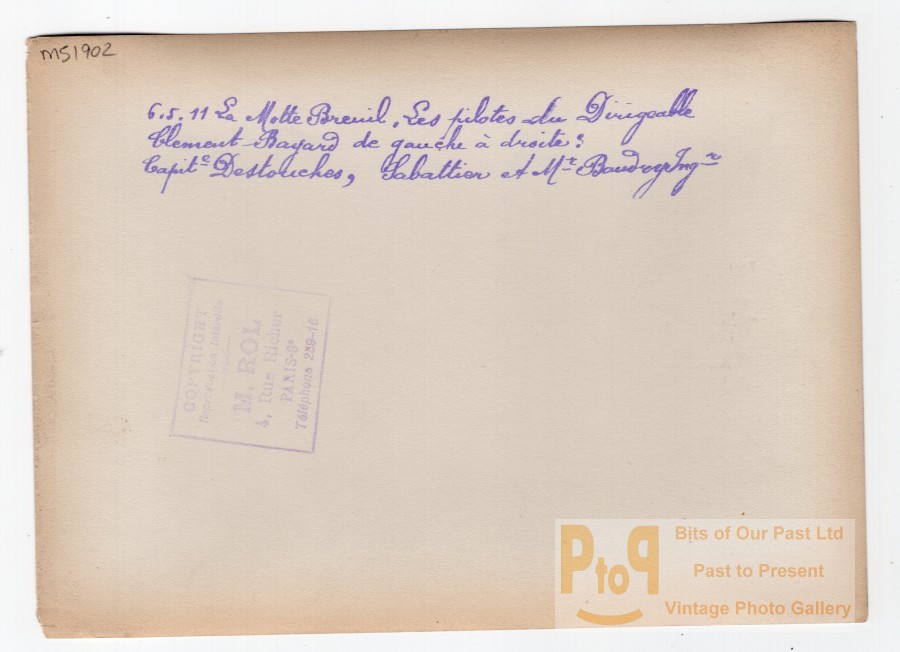 M51902
6.5.11 La Motte Breuil. Les pilotes du Dirigeable
Clement-Bayard de gauche à droite:
Capitᵉ Destouches, Sabattier et Mʳ Baudry Ingʳ
COPYRIGHT
Reproduction Interdite
M. ROL
4, Rue Richer
PARIS-9ᵉ
Téléphone 289-16
PtoP
Bits of Our Past Ltd
Past to Present
Vintage Photo Gallery